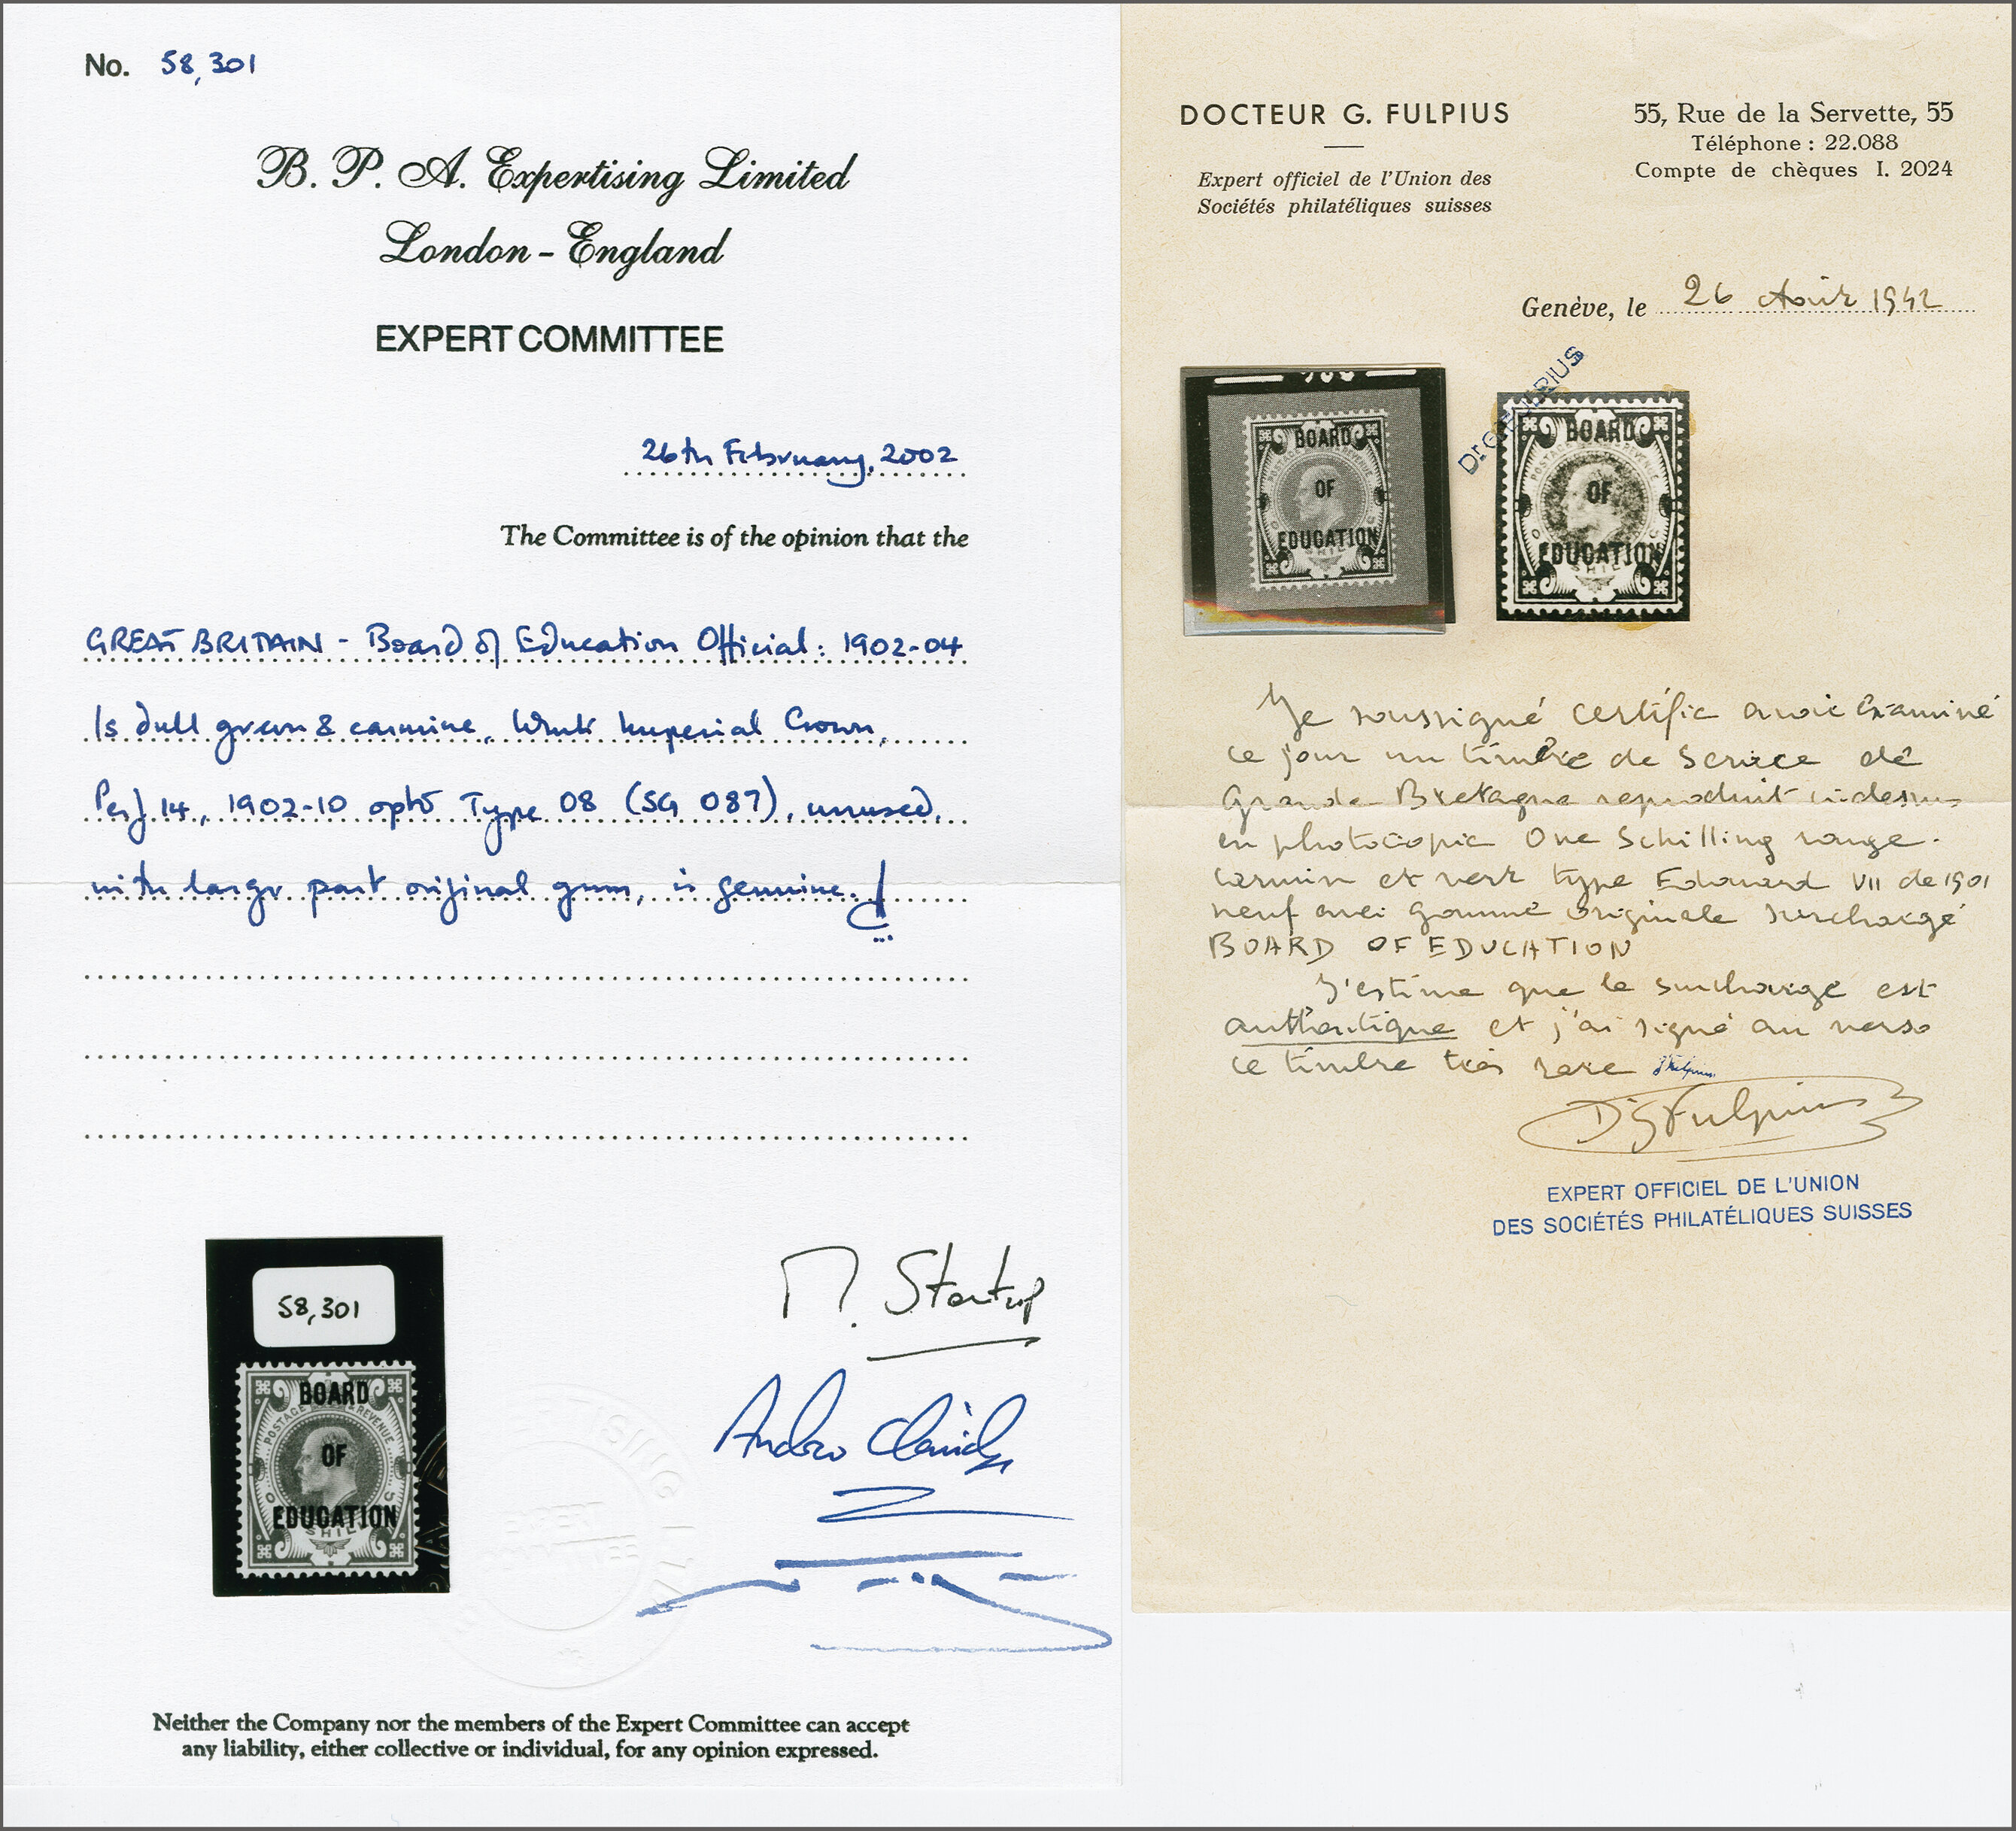 No. 58,301
B. P. A. Expertising Limited
London - England
EXPERT COMMITTEE
26th February, 2002
The Committee is of the opinion that the
GREAT BRITAIN - Board of Education Official: 1902-04
1s dull green & carmine, Wmk Imperial Crown,
Perf 14, 1902-10 optd Type 08 (SG 087), unused,
with large part original gum, is genuine.
58,301
BOARD
POSTAGE REVENUE
OF
EDUCATION
SHIL
M. Startup
EXPERT
Neither the Company nor the members of the Expert Committee can accept
any liability, either collective or individual, for any opinion expressed.
DOCTEUR G. FULPIUS
Expert officiel de l'Union des
Sociétés philatéliques suisses
55, Rue de la Servette, 55
Téléphone : 22.088
Compte de chèques I. 2024
Genève, le 26 Août 1942
Dr. G. FULPIUS
BOARD
OF
EDUCATION
BOARD
OF
EDUCATION
SHIL
Je soussigné certifie avoir examiné
ce jour un timbre de service de
Grande-Bretagne reproduit ci-dessus
en photocopie One Schilling rouge-
carmin et vert type Edouard VII de 1901
neuf avec gomme originale surchargé
BOARD OF EDUCATION
J'estime que la surcharge est
authentique et j'ai signé au verso
ce timbre très rare
Dr G Fulpius
EXPERT OFFICIEL DE L'UNION
DES SOCIÉTÉS PHILATÉLIQUES SUISSES